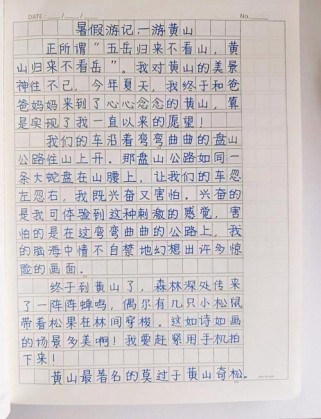 DATE: / /
No.
暑假游记：游黄山
正所谓“五岳归来不看山，黄
山归来不看岳”。我对黄山的美景
神往不已，今年夏天，我终于和爸
爸妈妈来到了心心念念的黄山，真
是实现了我一直以来的愿望！
我们的车沿着弯弯曲曲的盘山
公路往山上开。那盘山公路如同一
条大蛇盘在山腰上，让我们的车忽
左忽右，我既兴奋又害怕。兴奋的
是我可体验到这种刺激的感觉，害
怕的是在这弯弯曲曲的公路上，我
的脑海中情不自禁地幻想出许多惊
险的画面。
终于到黄山了，森林深处传来
了一阵阵蝉鸣，偶尔有几只小松鼠
带着松果在林间穿梭。这如诗如画
的场景多美啊！我要赶紧用手机拍
下来！
黄山最著名的莫过于黄山奇松。